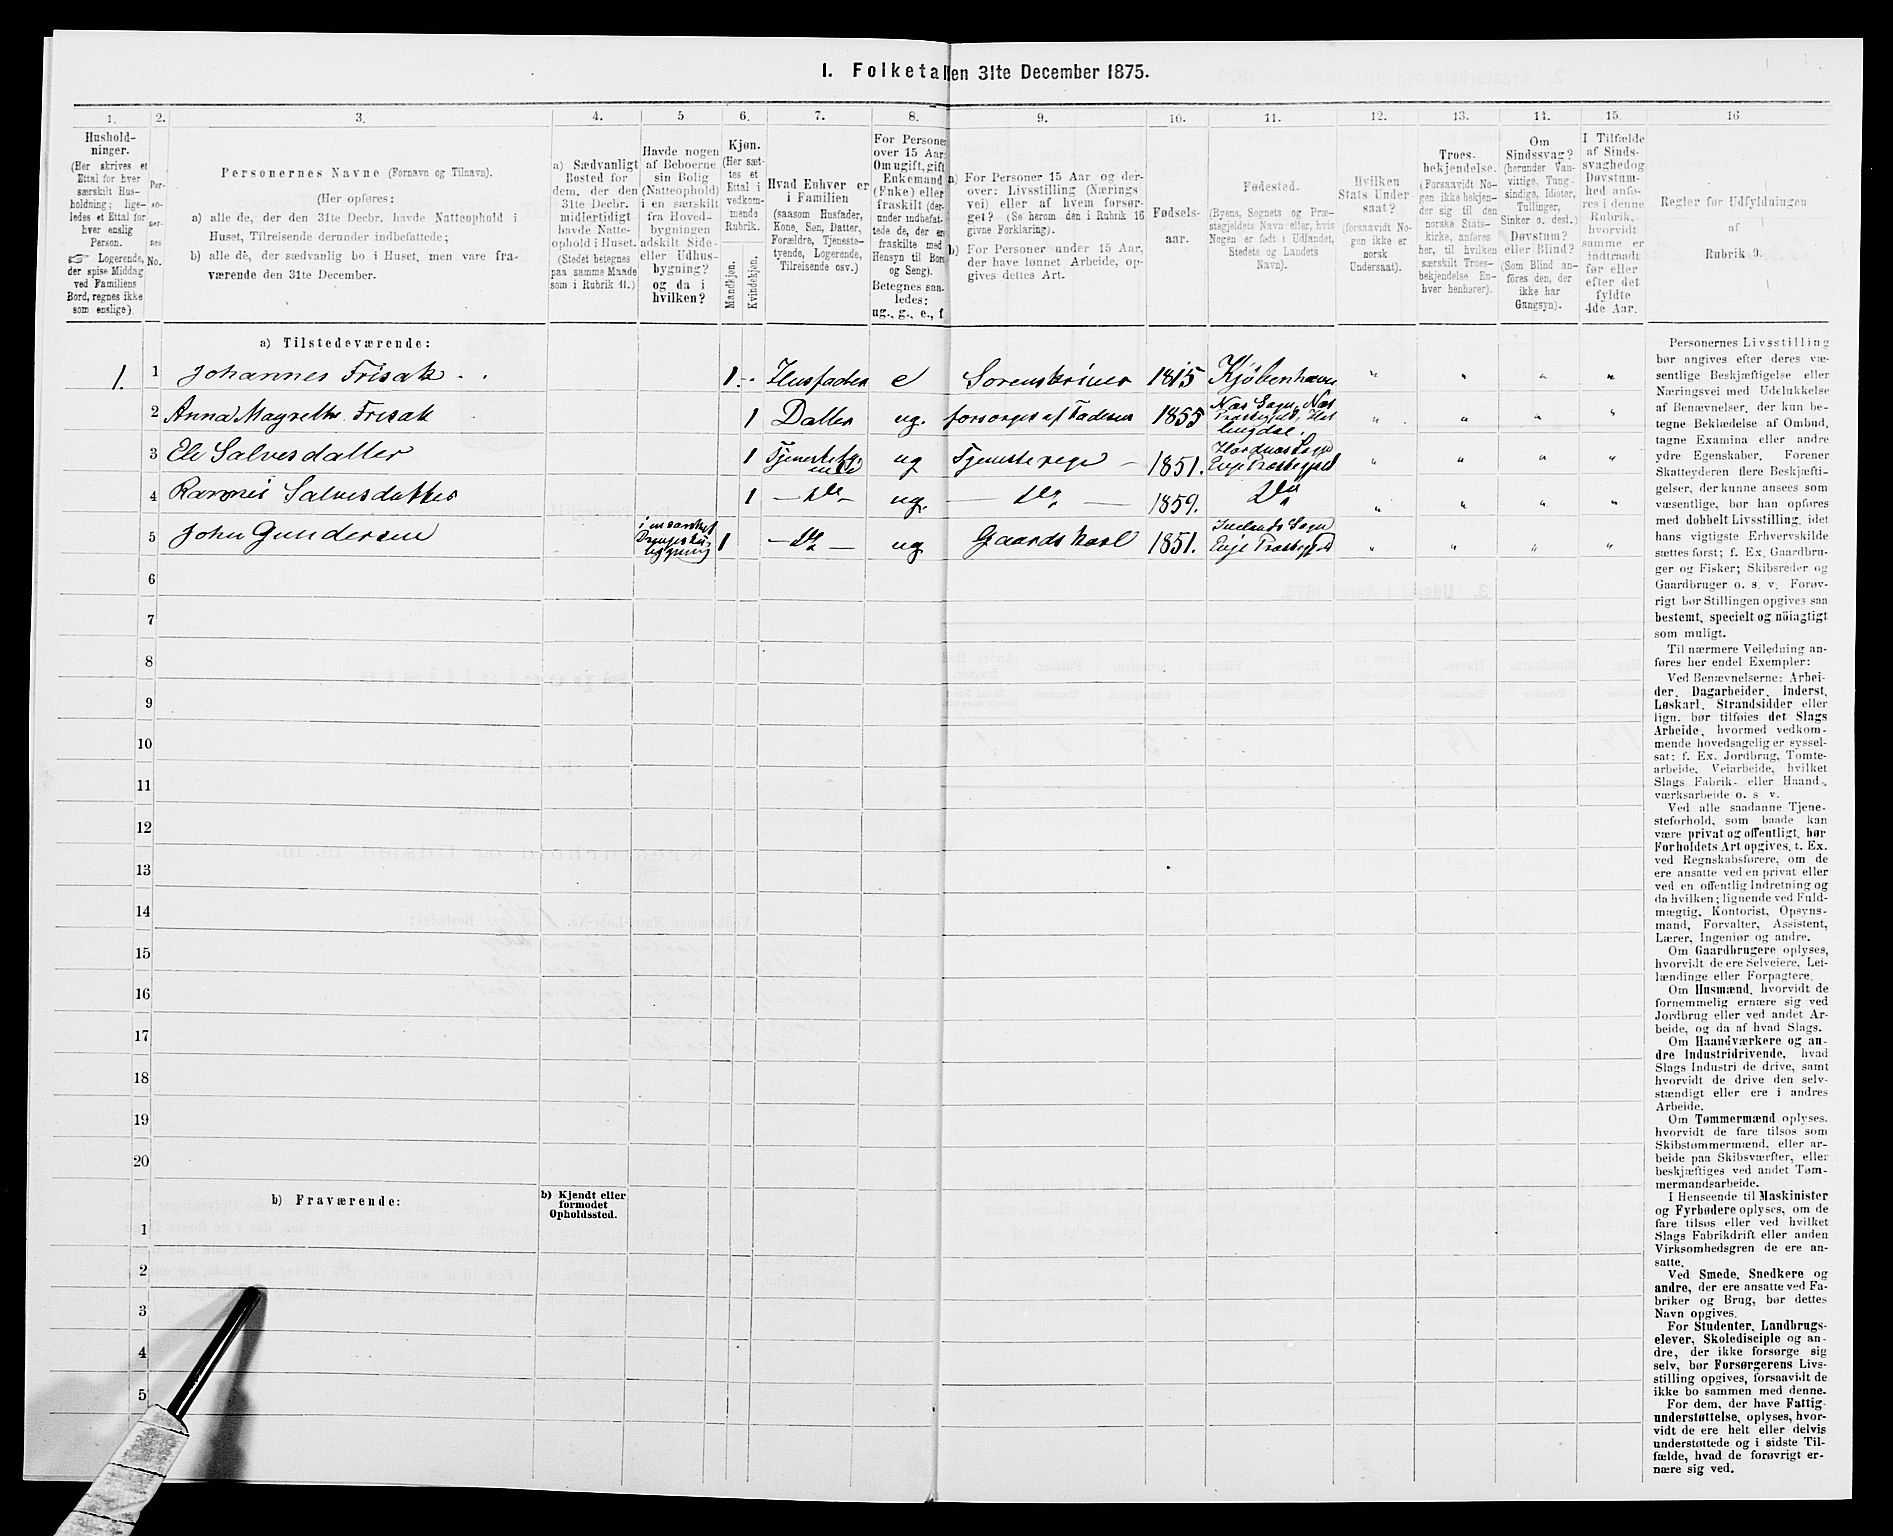 I. Folketal den 31te December 1875.
1.
2.
3.
4.
5
6.
7.
8.
9.
10.
11.
12.
13.
14.
15.
16
Hushold-
ninger.
(Her skrives et
Ettal for hver
særskilt Hus-
holdning; lige-
ledes et Ettal for
hver enslig
Person.
☞ Logerende,
der spise Middag
ved Familiens
Bord, regnes ikke
som enslige).
Per-
so-
ner-
nes
No.
Personernes Navne (Fornavn og Tilnavn).
(Her opføres:
a) alle de, der den 31te Decbr. havde Natteophold i
Huset, Tilreisende derunder indbefattede;
b) alle de, der sædvanlig bo i Huset, men vare fra-
værende den 31te December.
a) Sædvanligt
Bosted for
dem, der den
31te Decbr.
midlertidigt
havde Natte-
ophold i Huset.
(Stedet betegnes
paa samme Maade
som i Rubrik 11.)
Havde nogen
af Beboerne
sin Bolig
(Natteophold)
i en særskilt
fra Hoved-
bygningen
adskilt Side-
eller Udhus-
bygning?
og da i
hvilken?
Kjøn.
(Her sæt-
tes et
Ettal i
vedkom-
mende
Rubrik.
Mandkjøn.
Kvindekjøn.
Hvad Enhver er
i Familien
(saasom Husfader,
Kone, Søn, Datter,
Forældre, Tjeneste-
tyende, Logerende,
Tilreisende osv.)
For Personer
over 15 Aar:
Om ugift, gift,
Enkemand
(Enke) eller
fraskilt (der-
under indbefat-
tede de, der ere
fraskilte med
Hensyn til Bord
og Seng).
Betegnes saa-
ledes:
ug., g., e., f.
a) For Personer 15 Aar og der-
over: Livsstilling (Nærings
vei) eller af hvem forsør-
get? (Se herom den i Rubrik 16
givne Forklaring).
b) For Personer under 15 Aar,
der have lønnet Arbeide, op-
gives dettes Art.
Fødsels-
aar.
Fødested.
(Byens, Sognets og Præ-
stegjeldets Navn eller, hvis
Nogen er født i Udlandet,
Stedets og Landets
Navn).
Hvilken
Stats Under
saat?
(forsaavidt No-
gen ikke er
norsk
Undersaat).
Troes-
bekjendelse.
(Forsaavidt No-
gen ikke bekjen-
der sig til den
norske Stats-
kirke, anføres
her, til hvilken
særskilt Troes-
bekjendelse En-
hver henhører).
Om
Sindssvag?
(herunder Van-
vittige, Tung-
sindige, Idioter,
Tullinger,
Sinker o. desl.)
Døvstum?
eller Blind?
(Som Blind an-
føres den, der
ikke har
Gangsyn).
I Tilfælde
af Sinds-
svaghedog
Døvstum-
hed anfø-
res i denne
Rubrik,
hvorvidt
samme er
indtraadt
før eller
efter det
fyldte
4de Aar.
Regler før Udfyldningen
af
Rubrik 9.
a) Tilstedeværende:
1. 1 Johannes Frisak 1 Husfader e Sorenskriver 1815 Kjøbenhavn " " " "
2 Anna Magrethe Frisak 1 Datter ug. forsørges af Faderen 1855 Næs Sogn, Næs Præstegjeld, Hal lingdal. " " " "
3 Eli Salvesdatter 1 ug Tjenestepige 1851. Hordnæs Sogn Evje Præstegjeld " " " "
4 Salvesdatter 1 Do ug. Do 1859. Do " " " "
5 John Gundersen 1 Do ug Gaardskarl 1851. Iveland Sogn Evje Præstegjeld " " " "
6
7
8
9
10
11
12
13
14
15
16
17
18
19
20
b) Fraværende:
b) Kjendt eller
formodet
Opholdssted.
1
2
3
4
5
Personernes Livsstilling
bør angives efter deres væ-
sentlige Beskjæftigelse eller
Næringsvei med Udelukkelse
af Benævnelser, der kun be-
tegne Beklædelse af Ombud,
tagne Examina eller andre
ydre Egenskaber. Forener
Skatteyderen flere Beskjæfti-
gelser, der kunne ansees som
væsentlige, bør han opføres
med dobbelt Livsstilling, idet
hans vigtigste Erhvervskilde
sættes først; f. Ex. Gaardbru-
ger og Fisker; Skibsreder og
Gaardbruger o. s. v. Forøv-
rigt bør Stillingen opgives saa
bestemt, specielt og nöiagtigt
som muligt.
Til nærmere Veiledning an-
føres her endel Exempler:
Ved Benævnelserne: Arbei-
der, Dagarbeider, Inderst,
Løskarl, Strandsidder eller
lign. bør tilføies det Slags
Arbeide, hvormed vedkom-
mende hovedsagelig er syssel-
sat; f. Ex. Jordbrug, Tomte-
arbeide, Veiarbeide, hvilket
Slags Fabrik- eller Haand-
værksarbeide o. s. v.
Ved alle saadanne Tjene-
steforhold, som baade kan
være privat og offentligt, bør
Forholdets Art opgives, t. Ex.
ved Regnskabsførere, om de
ere ansatte ved en privat eller
ved en offentlig Indretning og
da hvilken; lignende ved Fuld-
mægtig, Kontorist, Opsyns-
mand, Forvalter, Assistent,
Lærer, Ingeniør og andre.
Om Gaardbrugere oplyses,
hvorvidt de ere Selveiere, Lei-
lændinge eller Forpagtere.
Om Husmænd, hvorvidt de
fornemmelig ernære sig ved
Jordbrug eller ved andet Ar-
beide, og da af hvad Slags.
Om Haandværkere og an-
dre Industridrivende, hvad
Slags Industri de drive, samt
hvorvidt de drive den selv-
stændigt eller ere i andres
Arbeide.
Om Tømmermænd oplyses,
hvorvidt de fare tilsøs som
Skibstømmermænd, eller ar-
beide paa Skibsværfter, eller
beskjæftiges ved andet Tøm-
mermandsarbeide.
I Henseende til Maskinister
og Fyrbødere oplyses, om de
fare tilsøs eller ved hvilket
Slags Fabrikdrift eller anden
Virksomhedsgren de ere an-
satte.
Ved Smede, Snedkere og
andre, der ere ansatte ved Fa-
briker og Brug, bør dettes
Navn opgives.
For Studenter, Landbrugs-
elever, Skoledisciple og an-
dre, der ikke forsørge sig
selv, bør Forsørgerens Livs-
stilling opgives, forsaavidt de
ikke bo sammen med denne.
For dem, der have Fattig-
understøttelse, oplyses, hvor-
vidt de ere helt eller delvis
understøttede og i sidste Til-
fælde, hvad de forøvrigt er-
nære sig ved.